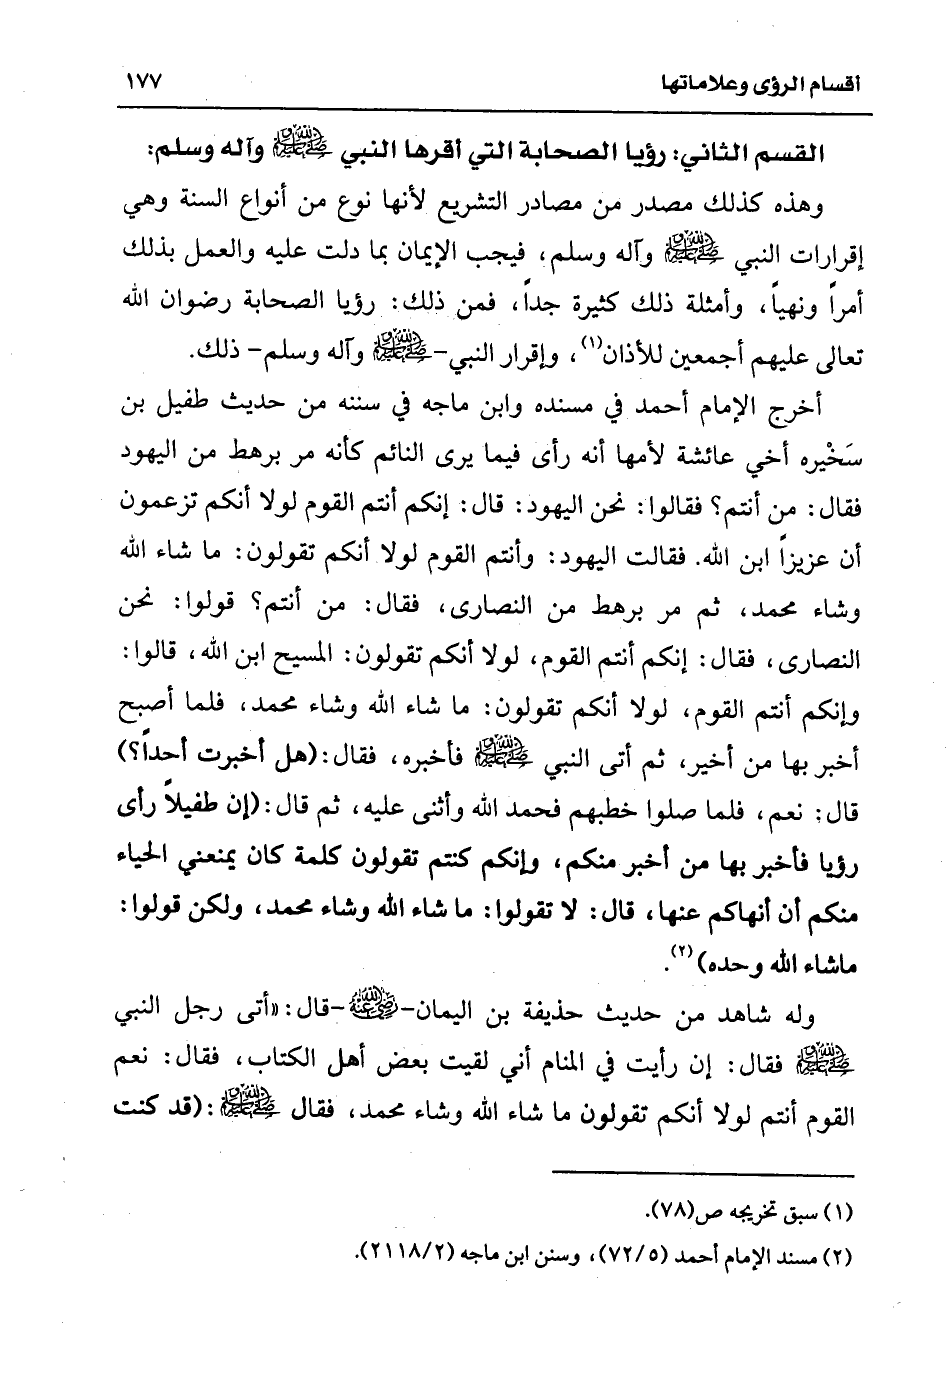 أقسام الرؤى وعلاماتها ١٧٧
القسم الثاني: رؤيا الصحابة التي أقرها النبي ﷺ وآله وسلم:
وهذه كذلك مصدر من مصادر التشريع لأنها نوع من أنواع السنة وهي
إقرارات النبي ﷺ وآله وسلم، فيجب الإيمان بما دلت عليه والعمل بذلك
أمراً ونهياً، وأمثلة ذلك كثيرة جداً، فمن ذلك: رؤيا الصحابة رضوان الله
تعالى عليهم أجمعين للأذان(١)، وإقرار النبي-ﷺ وآله وسلم- ذلك.
أخرج الإمام أحمد في مسنده وابن ماجه في سننه من حديث طفيل بن
سَخْيره أخي عائشة لأمها أنه رأى فيما يرى النائم كأنه مر برهط من اليهود
فقال: من أنتم؟ فقالوا: نحن اليهود: قال: إنكم أنتم القوم لولا أنكم تزعمون
أن عزيزاً ابن الله. فقالت اليهود: وأنتم القوم لولا أنكم تقولون: ما شاء الله
وشاء محمد، ثم مر برهط من النصارى، فقال: من أنتم؟ قولوا: نحن
النصارى، فقال: إنكم أنتم القوم، لولا أنكم تقولون: المسيح ابن الله، قالوا:
وإنكم أنتم القوم، لولا أنكم تقولون: ما شاء الله وشاء محمد، فلما أصبح
أخبر بها من أخير، ثم أتى النبي ﷺ فأخبره، فقال:(هل أخبرت أحداً؟)
قال: نعم، فلما صلوا خطبهم فحمد الله وأثنى عليه، ثم قال:(إن طفيلاً رأى
رؤيا فأخبر بها من أخبر منكم، وإنكم كنتم تقولون كلمة كان يمنعني الحياء
منكم أن أنهاكم عنها، قال: لا تقولوا: ما شاء الله وشاء محمد، ولكن قولوا:
ماشاء الله وحده)(٢).
وله شاهد من حديث حذيفة بن اليمان-رضي الله عنه-قال:«أتى رجل النبي
ﷺ فقال: إن رأيت في المنام أني لقيت بعض أهل الكتاب، فقال: نعم
القوم أنتم لولا أنكم تقولون ما شاء الله وشاء محمد، فقال ﷺ:(قد كنت
(١) سبق تخريجه ص(٧٨).
(٢) مسند الإمام أحمد (٧٢/٥)، وسنن ابن ماجه (٢١١٨/٢).